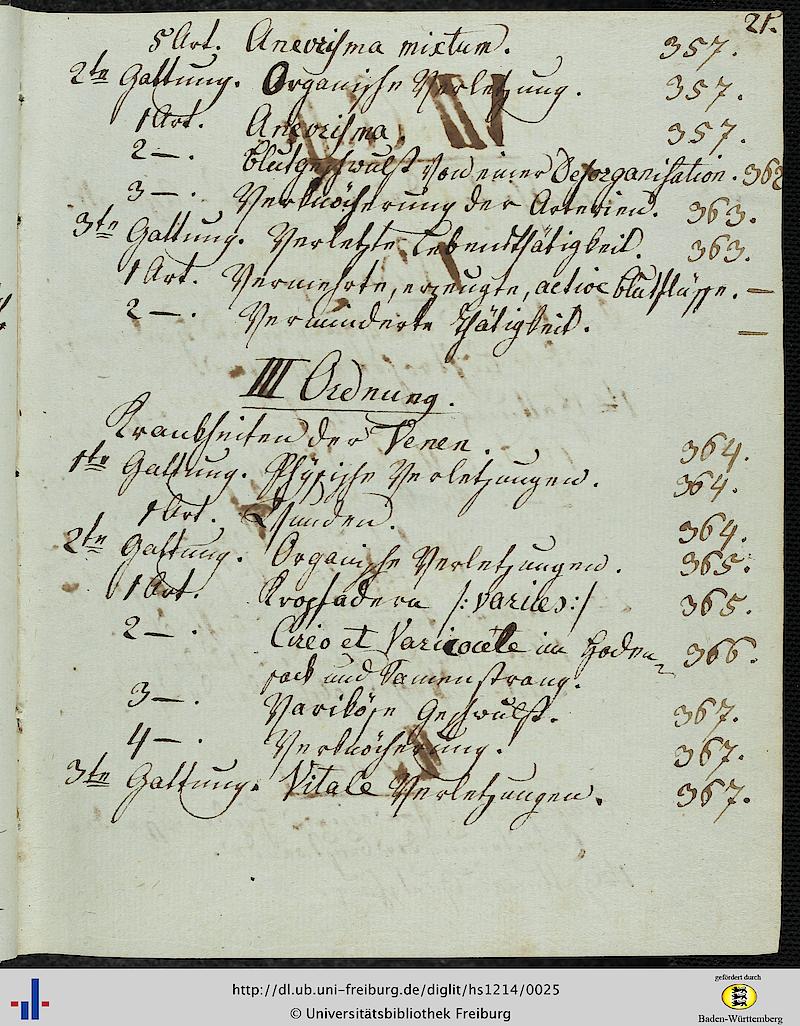 21.
5 Art. Anevrisma mixtum. 357.
2te Gattung. Organische Verletzung. 357.
1 Art. Anevrisma. 357.
2 —. Blutgeschwulst von einer Desorganisation. 362
3 —. Verknöcherung der Arterien. 363.
3te Gattung. Verletzte Lebensthätigkeit. 363.
1 Art. Vermehrte, erzeugte, active Blutflüsse. —
2 —. Verminderte Thätigkeit. —
III Ordnung.
Krankheiten der Venen. 364.
1te Gattung. Physische Verletzungen. 364.
1 Art. Wunden. 364.
2te Gattung. Organische Verletzungen. 365.
1 Art. Kropfadern /: varices :/ 365.
2 —. Circo et Varicocele im Hoden- 366.
sack und Samenstrang.
3 —. Variköse Geschwulst. 367.
4 —. Verknöcherung. 367.
3te Gattung. Vitale Verletzungen. 367.
http://dl.ub.uni-freiburg.de/diglit/hs1214/0025
© Universitätsbibliothek Freiburg
gefördert durch
Baden-Württemberg